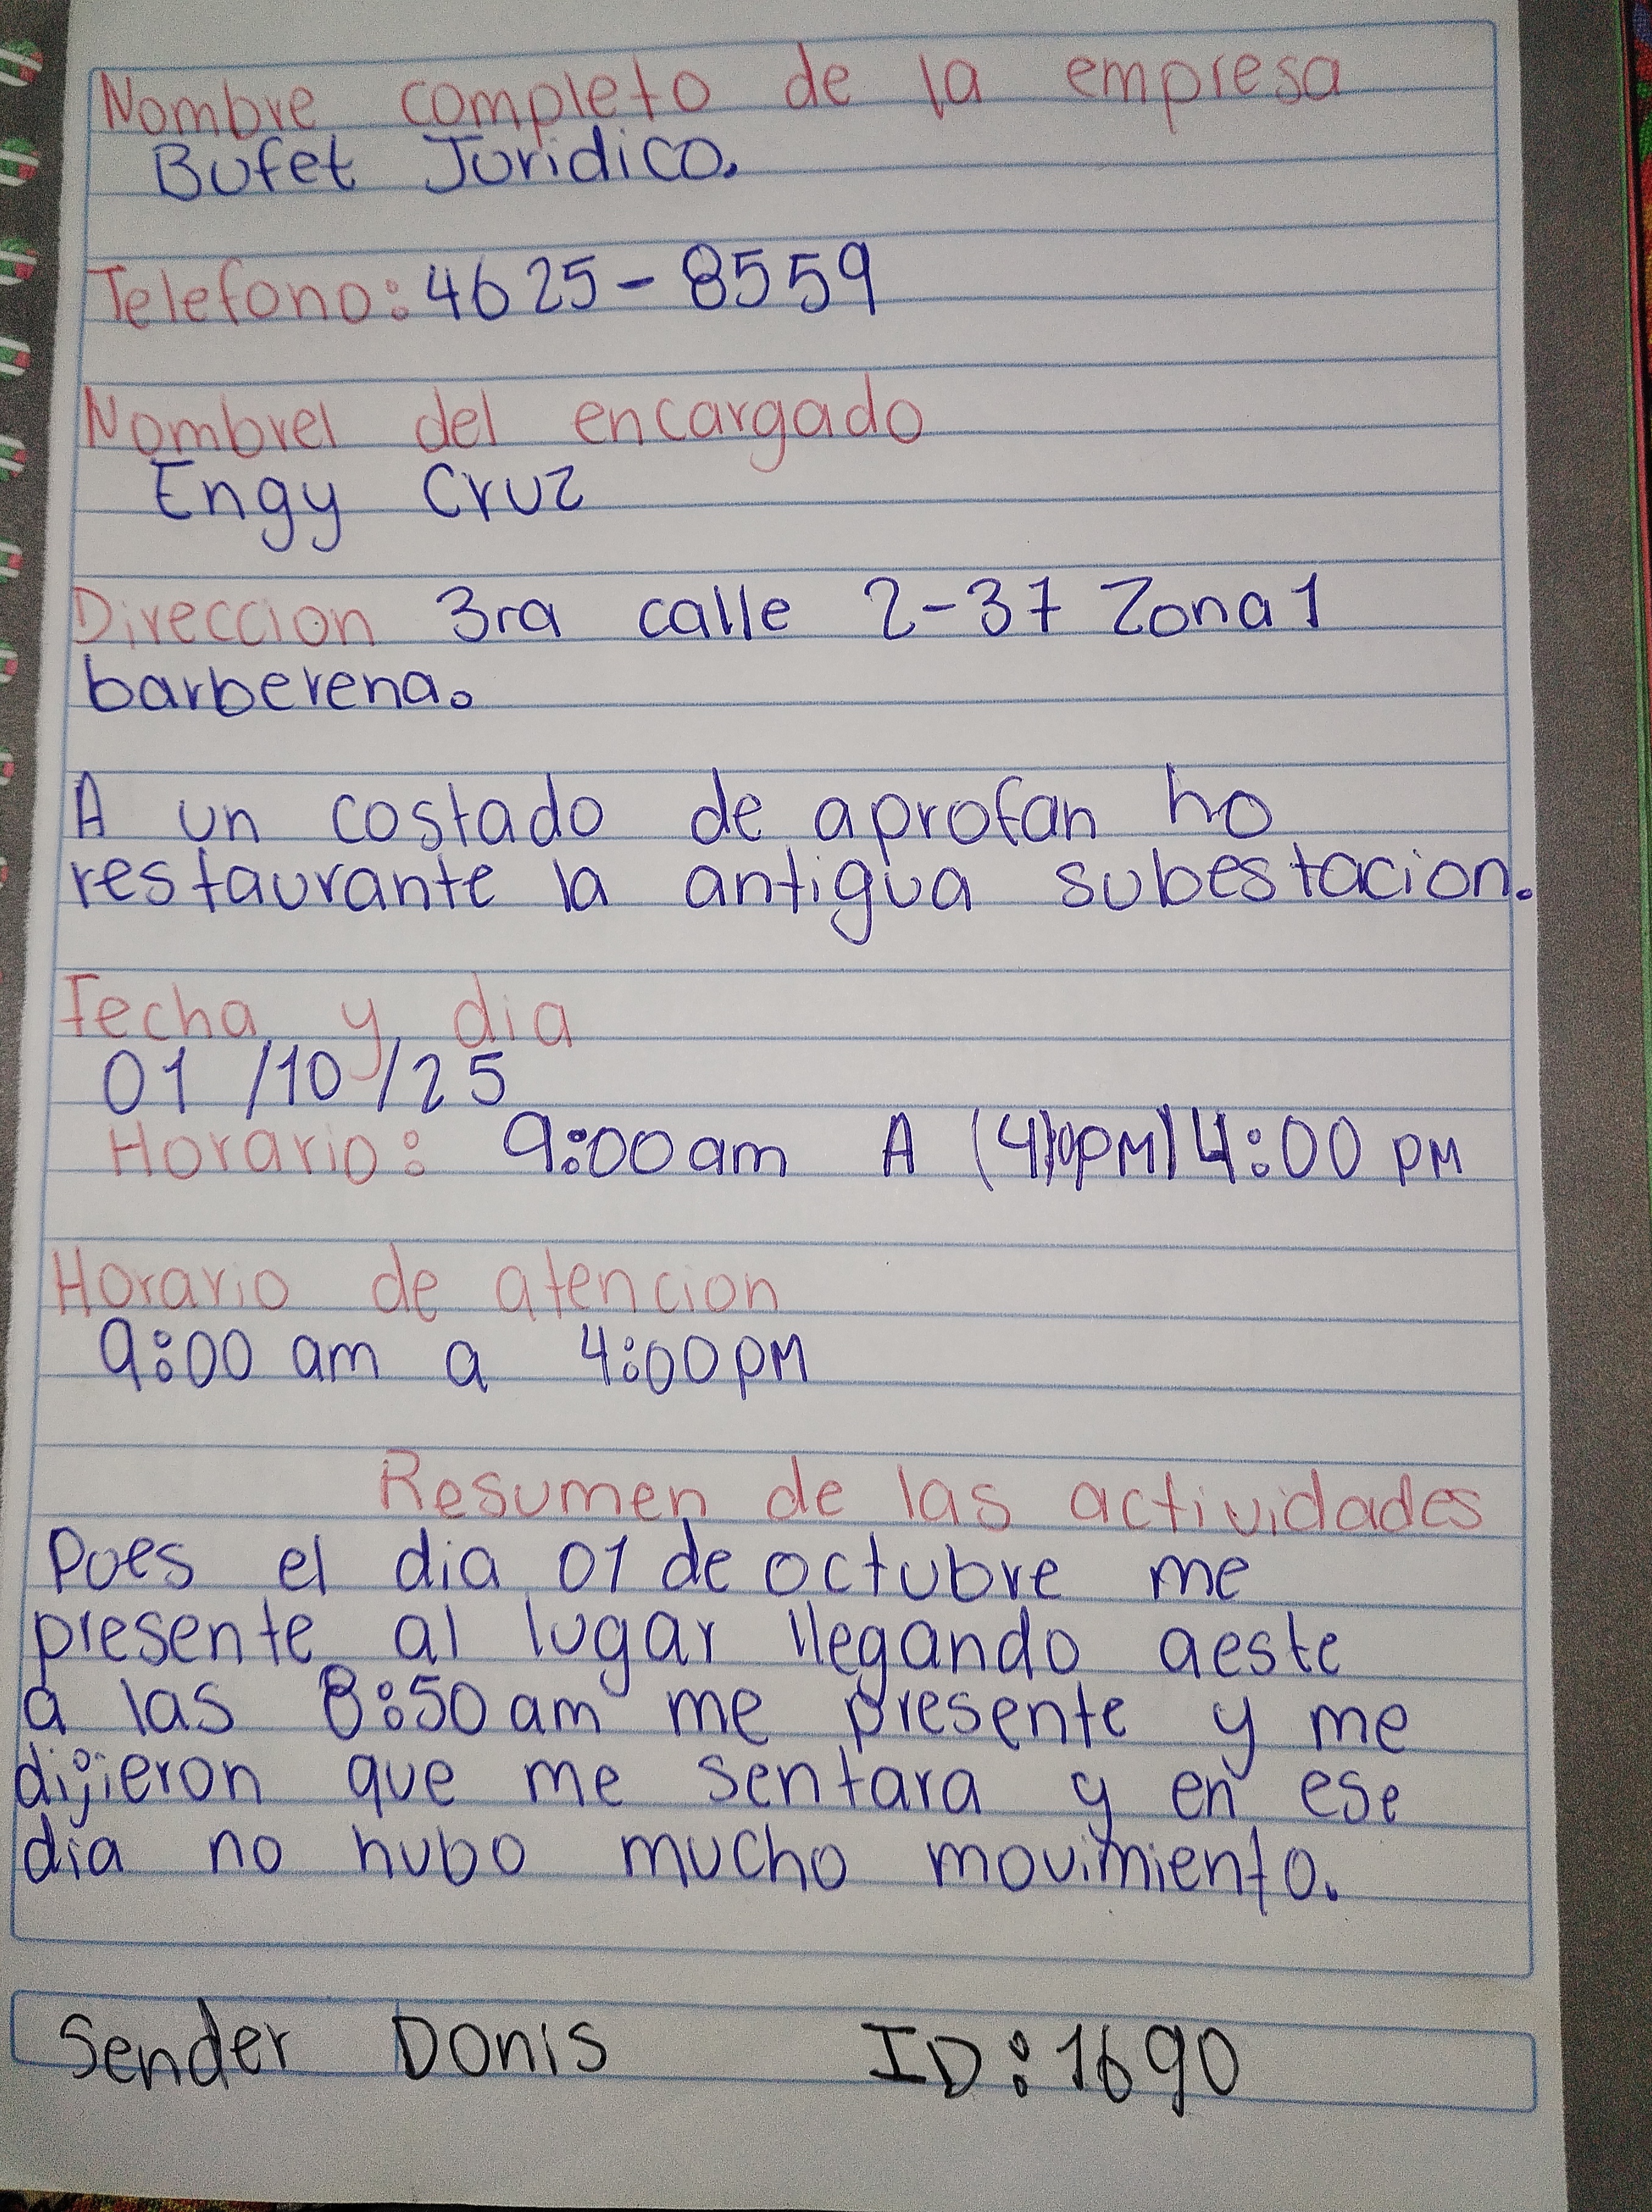 Nombre completo de la empresa
Bufet Juridico.
Telefono: 4625-8559
Nombrel del encargado
Engy Cruz
Direccion 3ra calle 2-37 Zona 1
barberena.
A un costado de aprofan ho
restaurante la antigua subestacion.
Fecha y dia
01/10/25
Horario: 9:00 am A (4) PM) 4:00 PM
Horario de atencion
9:00 am a 4:00 PM
Resumen de las actividades
Pues el dia 01 de octubre me
presente al lugar llegando aeste
a las 8:50 am me presente y me
dijieron que me sentara y en ese
dia no hubo mucho movimiento.
Sender Donis ID: 1690